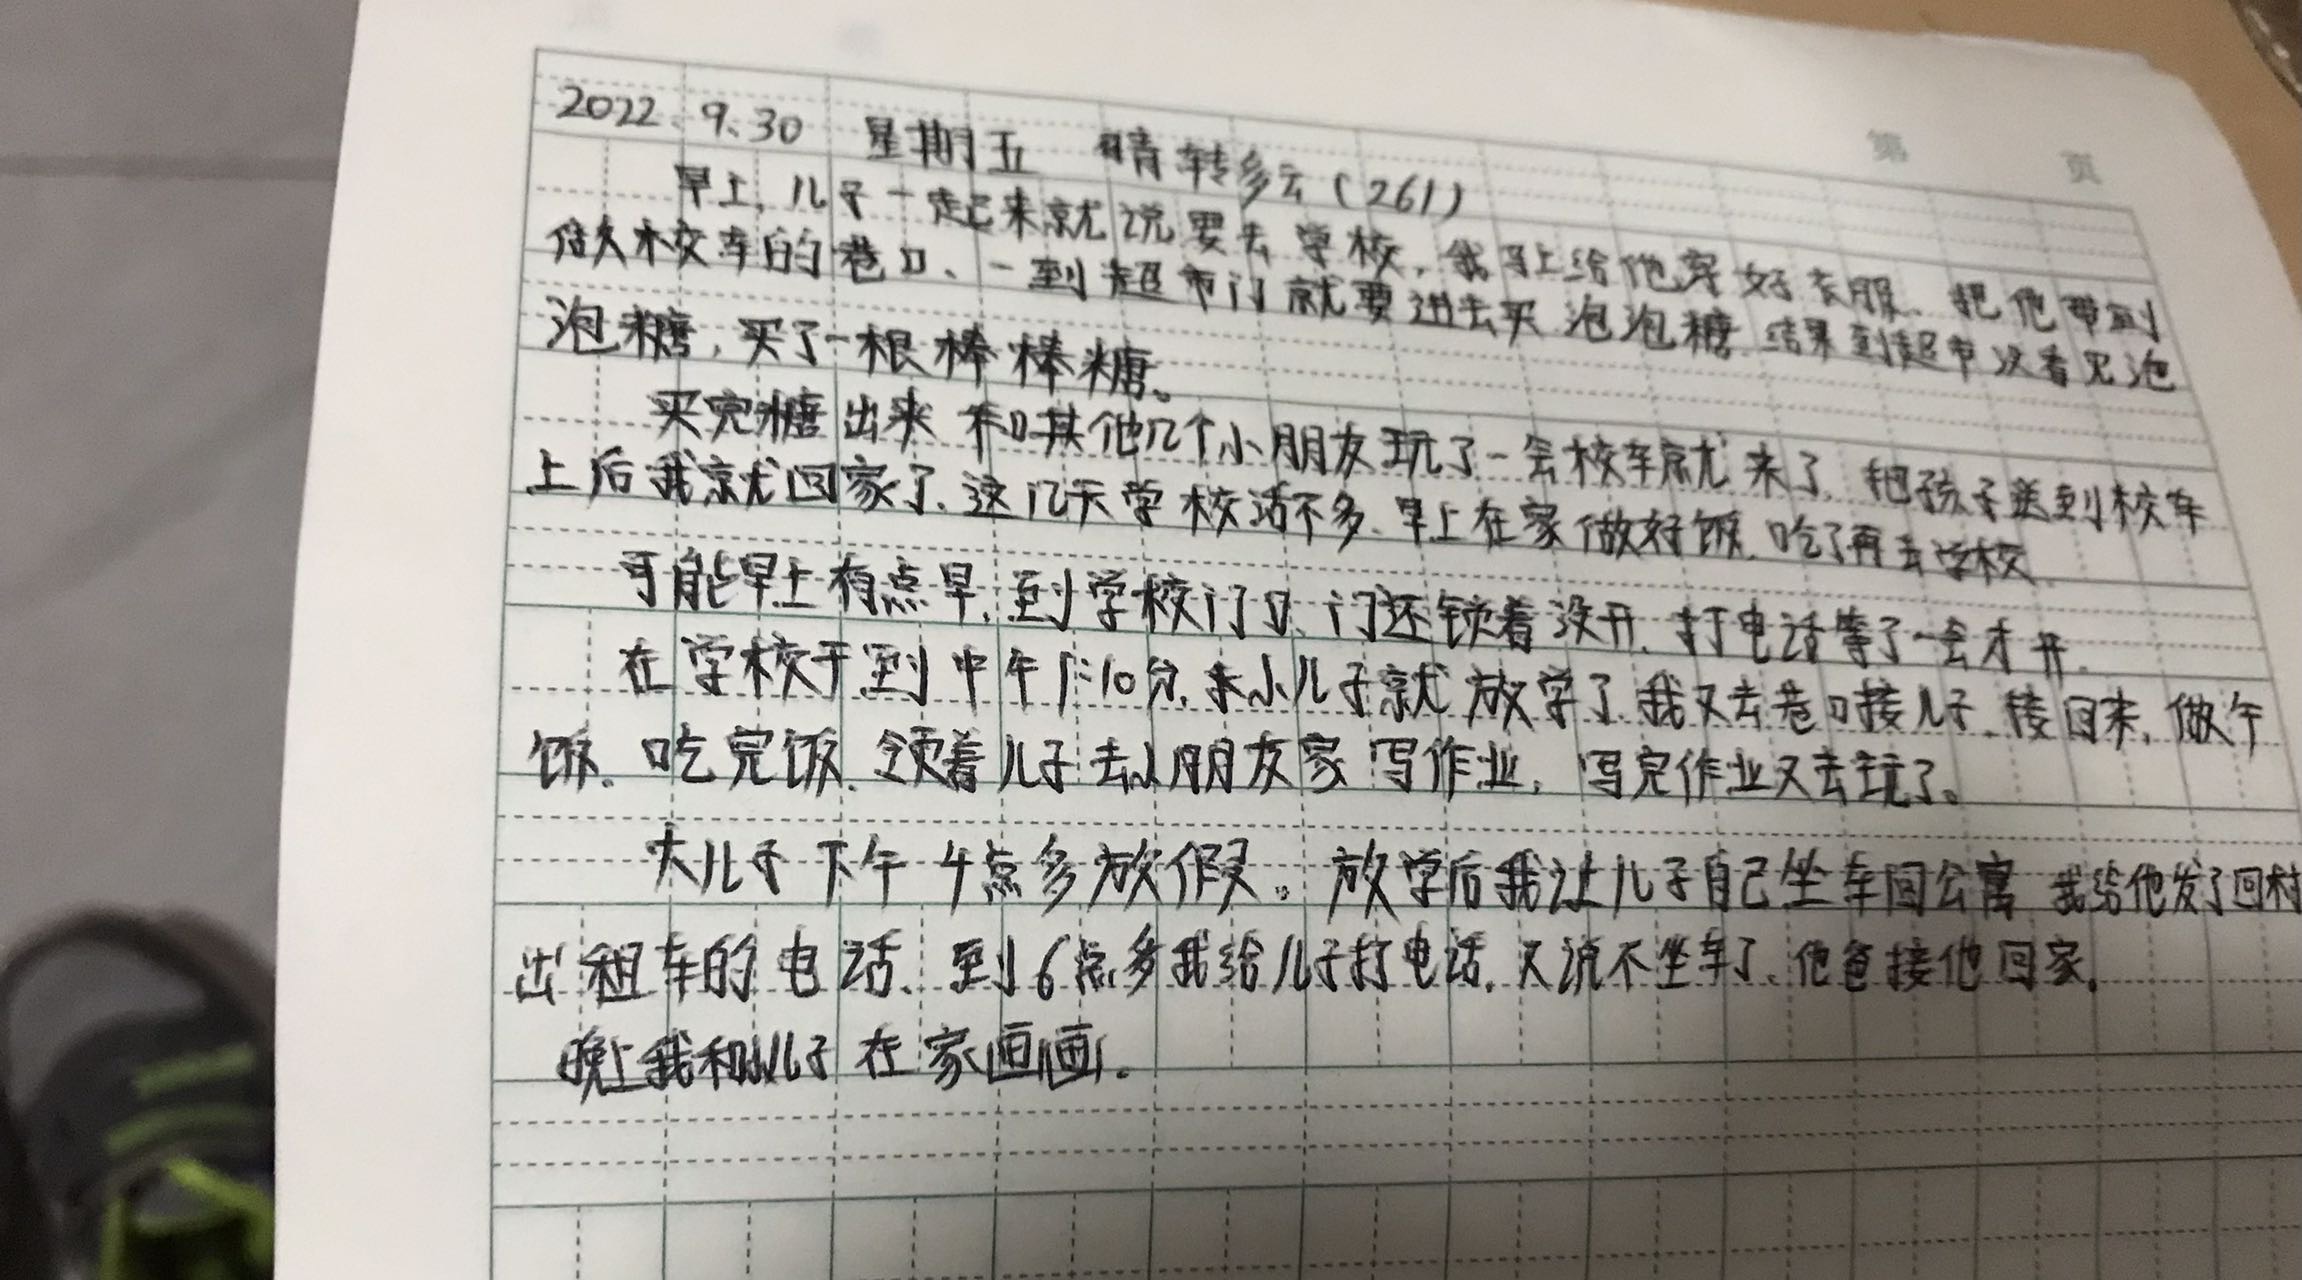 第 页
2022、9、30 星期五 晴转多云(261)
早上,儿子一起来就说要去学校,我马上给他穿好衣服、把他带到
做校车的巷口、一到超市门就要进去买泡泡糖 结果到超市没看见泡
泡糖,买了一根棒棒糖。
买完糖出来 和其他几个小朋友玩了一会校车就来了,把孩子送到校车
上后我就回家了、这几天学校活不多、早上在家做好饭、吃了再去学校
可能早上有点早,到学校门口、门还锁着没开、打电话等了一会才开、
在学校干到中午1:10分,小儿子就放学了 我又去巷口接儿子、接回来,做午
饭、吃完饭、领着儿子去小朋友家写作业,写完作业又去玩了。
大儿子下午4点多放假。放学后我让儿子自己坐车回公寓 我给他发了回村
出租车的电话、到6点多我给儿子打电话,又说不坐车了、他爸接他回家,
晚上我和小儿子在家画画。